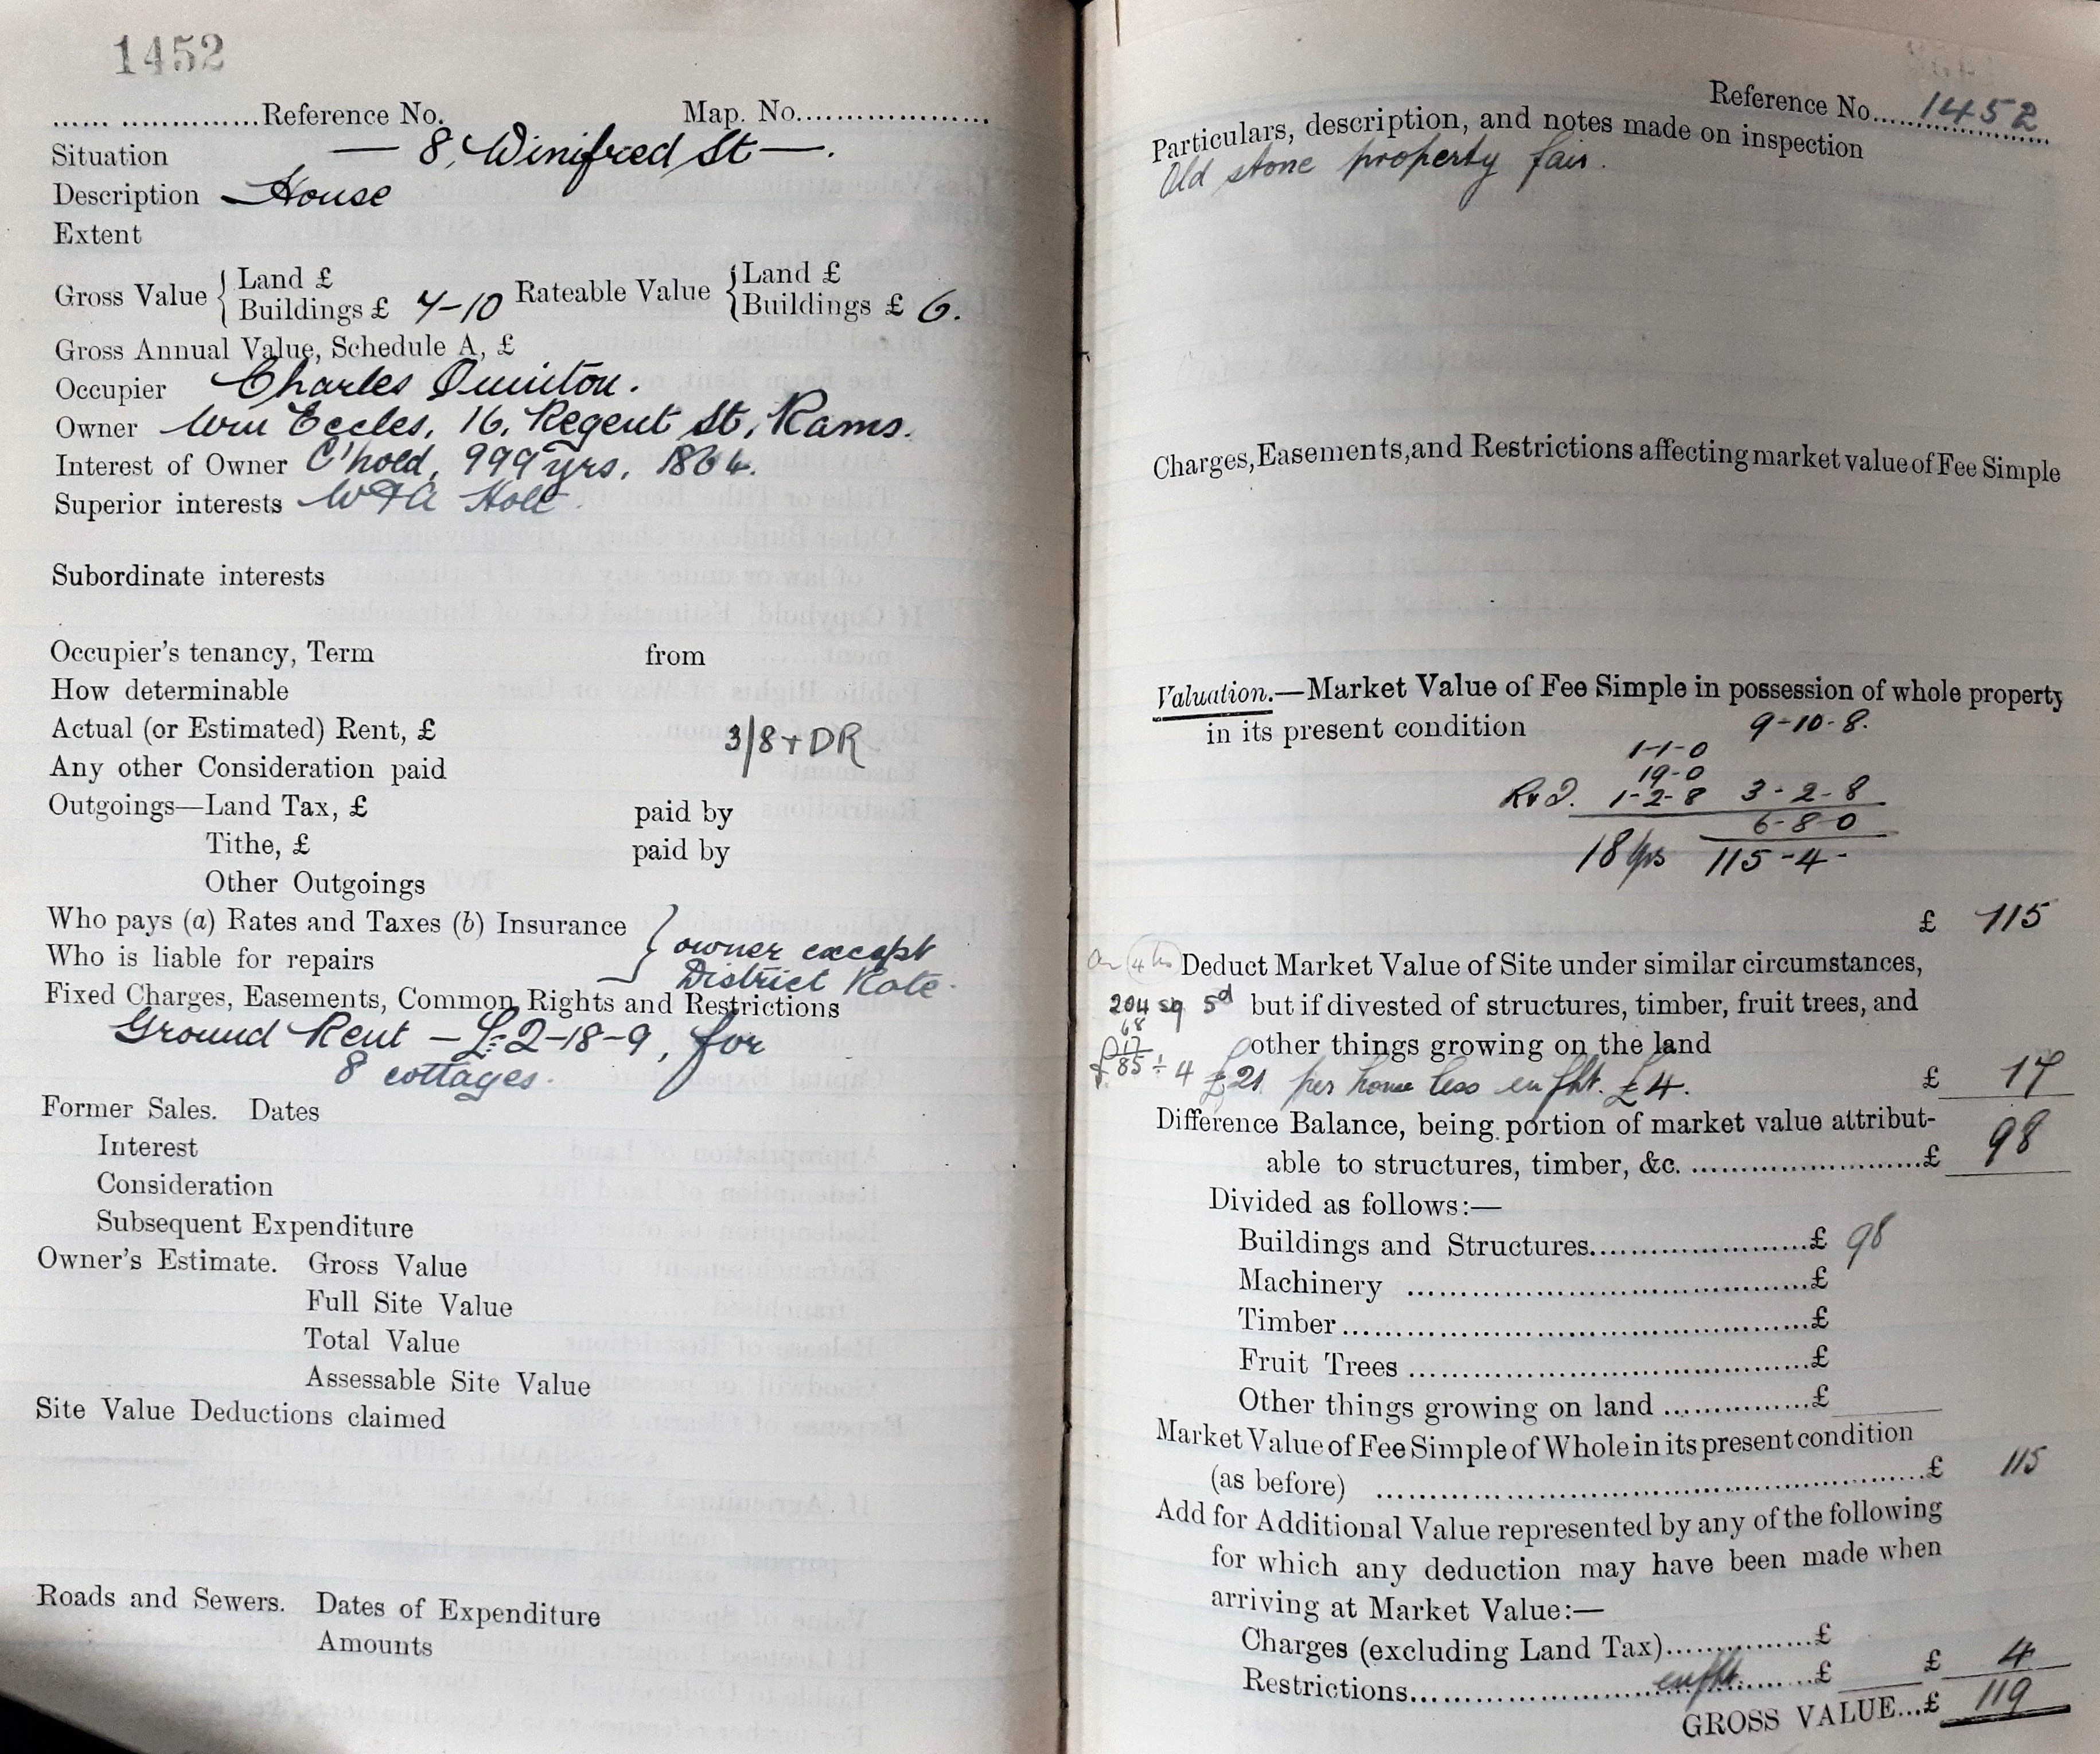 1452
...... ..............Reference No. Map. No...................
Situation — 8, Winifred St —.
Description House
Extent
Gross Value { Land £ Rateable Value { Land £
Buildings £ 7-10 Buildings £ 6.
Gross Annual Value, Schedule A, £
Occupier Charles Quinton.
Owner Wm Eccles, 16, Regent St, Rams.
Interest of Owner C'hold, 999 yrs, 1864.
Superior interests W & A Holt
Subordinate interests
Occupier's tenancy, Term from
How determinable
Actual (or Estimated) Rent, £ 3/8 + DR
Any other Consideration paid
Outgoings—Land Tax, £ paid by
Tithe, £ paid by
Other Outgoings
Who pays (a) Rates and Taxes (b) Insurance } owner except
Who is liable for repairs District Rate.
Fixed Charges, Easements, Common Rights and Restrictions
Ground Rent — £2-18-9, for
8 cottages.
Former Sales. Dates
Interest
Consideration
Subsequent Expenditure
Owner's Estimate. Gross Value
Full Site Value
Total Value
Assessable Site Value
Site Value Deductions claimed
Roads and Sewers. Dates of Expenditure
Amounts
Reference No....1452
Particulars, description, and notes made on inspection
Old stone property fair.
Charges, Easements, and Restrictions affecting market value of Fee Simple
Valuation.—Market Value of Fee Simple in possession of whole property
in its present condition 9-10-8.
1-1-0
19-0
R & I. 1-2-8 3-2-8
6-8-0
18 yrs 115-4-
£ 115
Deduct Market Value of Site under similar circumstances,
204 sq 5d but if divested of structures, timber, fruit trees, and
68
17 other things growing on the land
£85 ÷ 4 £21 per house less enfht. £4. £ 17
Difference Balance, being portion of market value attribut-
able to structures, timber, &c. ........................£ 98
Divided as follows:—
Buildings and Structures......................£ 98
Machinery ......................................£
Timber.............................................£
Fruit Trees ......................................£
Other things growing on land ...............£
Market Value of Fee Simple of Whole in its present condition
(as before) ......................................................£ 115
Add for Additional Value represented by any of the following
for which any deduction may have been made when
arriving at Market Value:—
Charges (excluding Land Tax)...............£
Restrictions.........................enfht.........£ £ 4
GROSS VALUE...£ 119